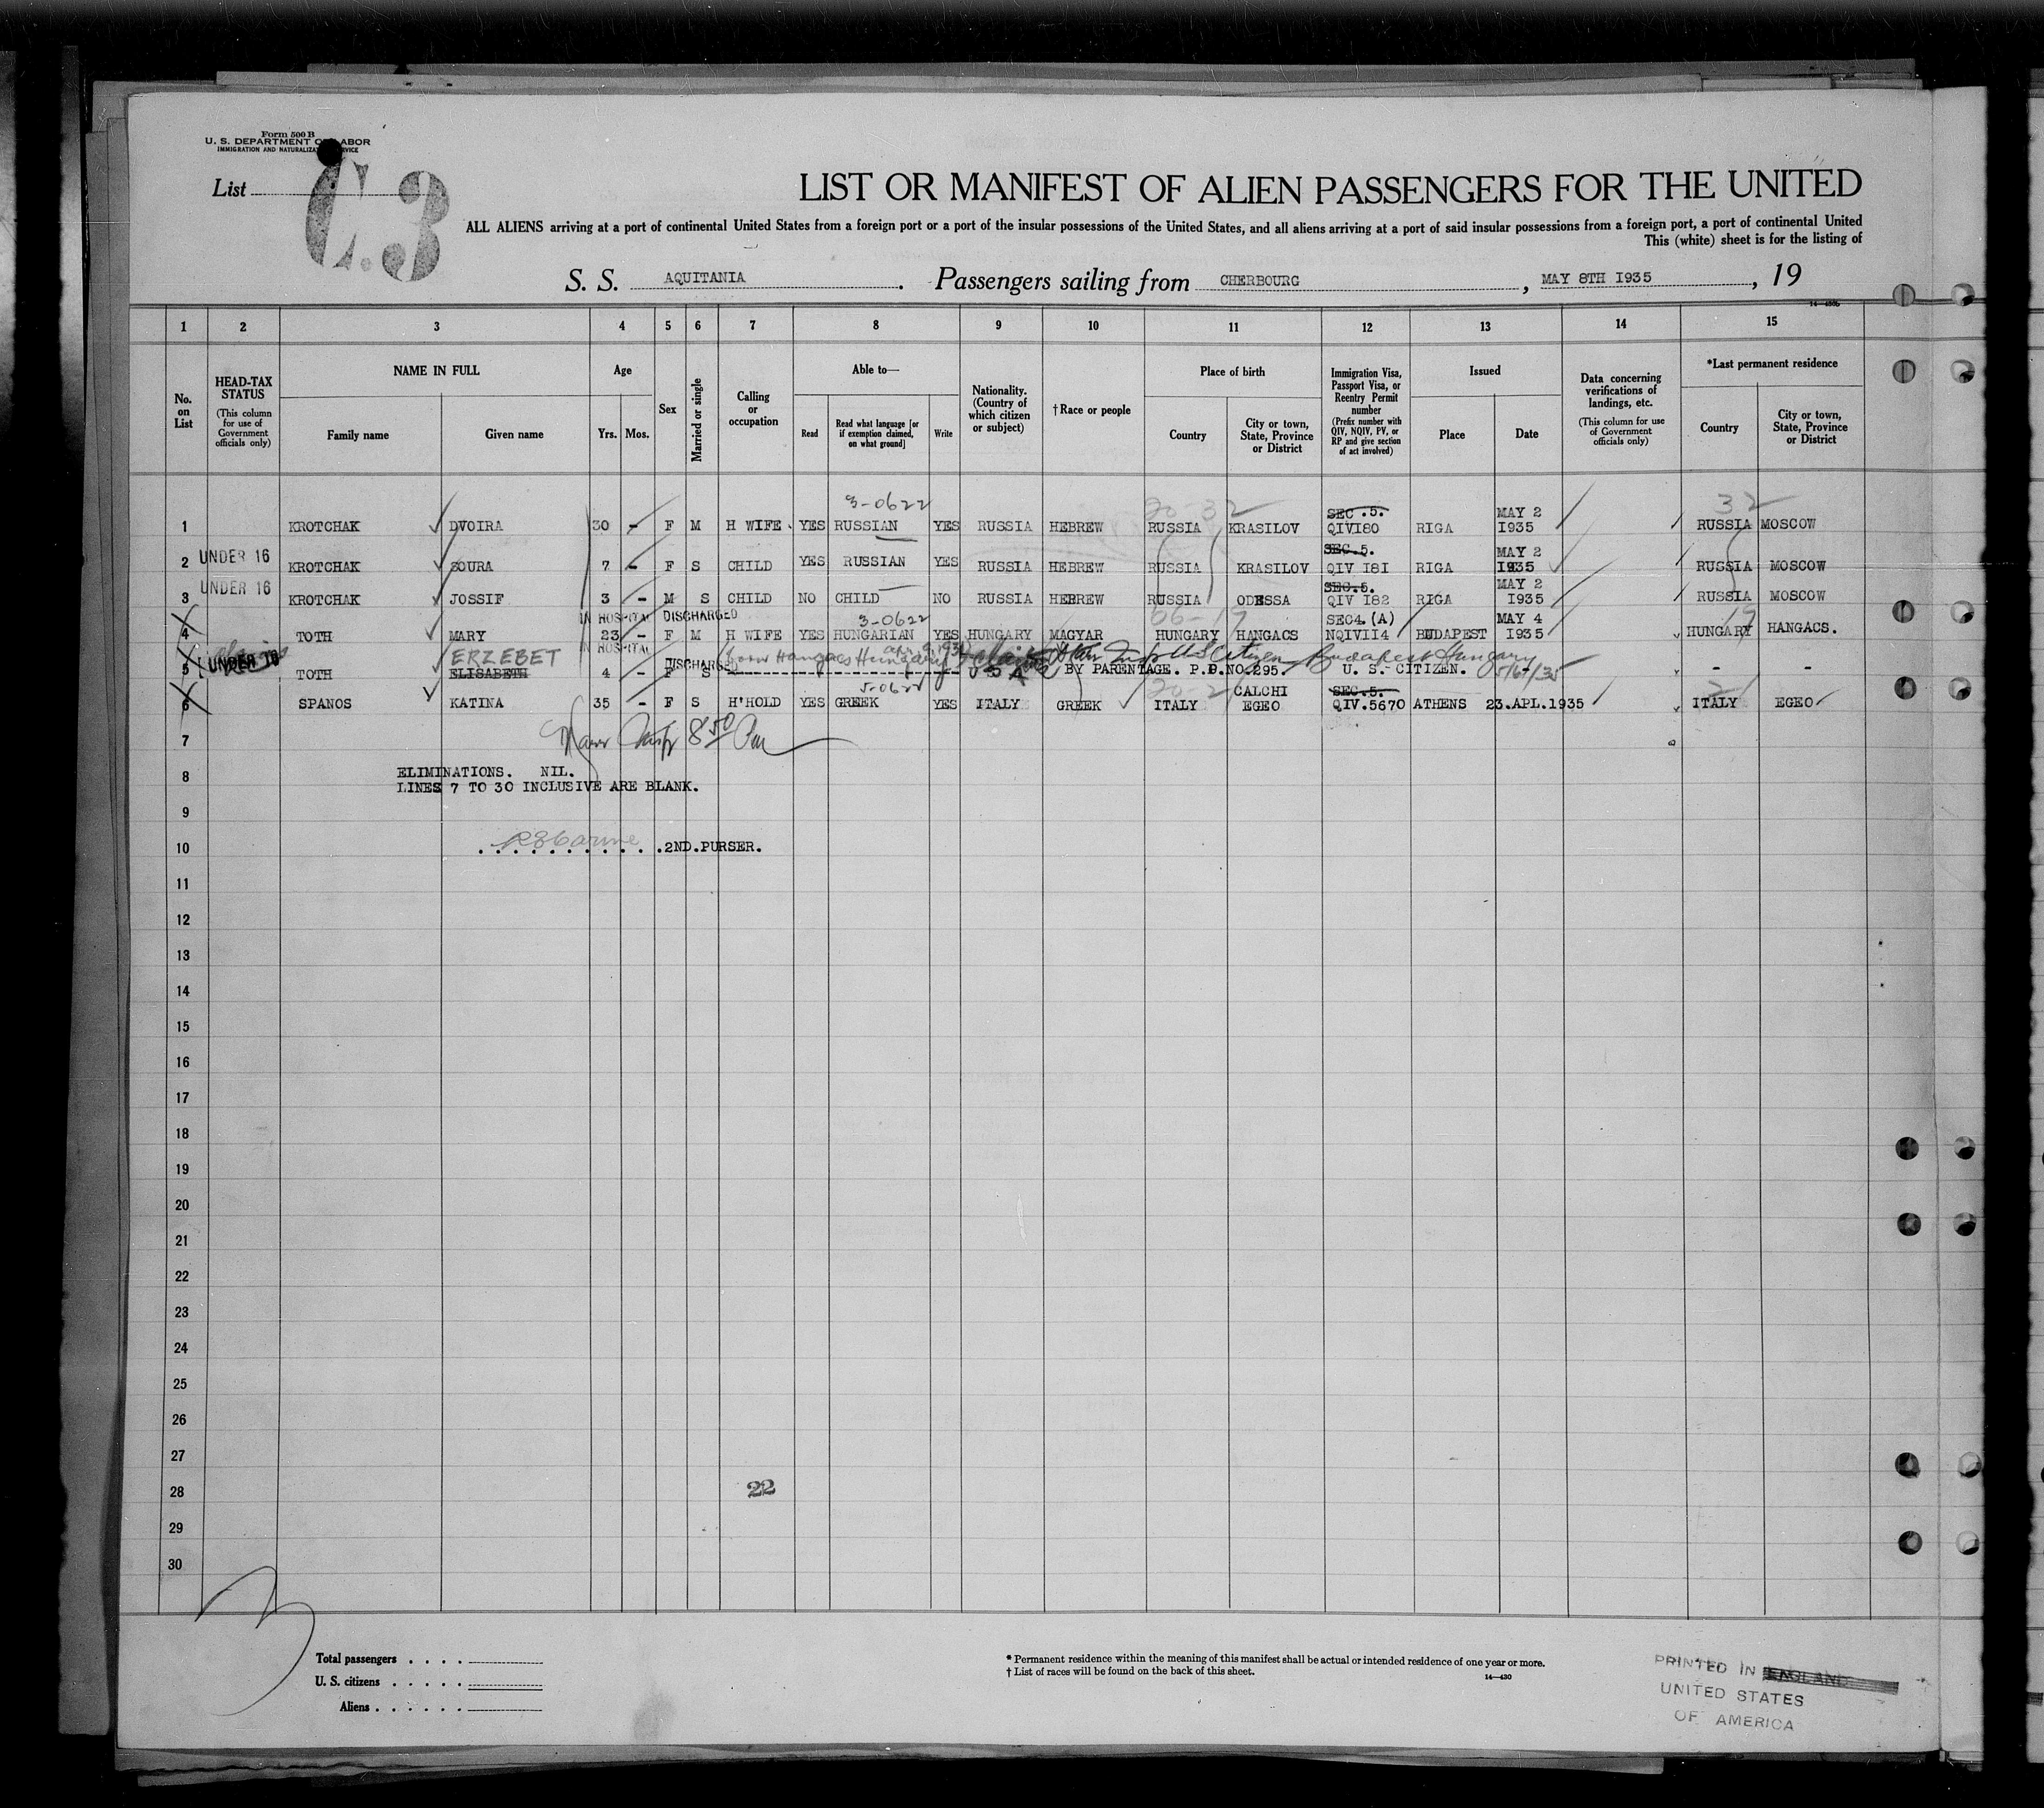 Form 500 B
U. S. DEPARTMENT OF LABOR
IMMIGRATION AND NATURALIZATION SERVICE
List C.3
LIST OR MANIFEST OF ALIEN PASSENGERS FOR THE UNITED
ALL ALIENS arriving at a port of continental United States from a foreign port or a port of the insular possessions of the United States, and all aliens arriving at a port of said insular possessions from a foreign port, a port of continental United
This (white) sheet is for the listing of
S. S. AQUITANIA. Passengers sailing from CHERBOURG, MAY 8TH 1935, 19
1 2 3 4 5 6 7 8 9 10 11 12 13 14 15
No. on List
HEAD-TAX STATUS (This column for use of Government officials only)
NAME IN FULL
Family name Given name
Age
Yrs. Mos.
Sex
Married or single
Calling or occupation
Able to—
Read
Read what language [or if exemption claimed, on what ground]
Write
Nationality. (Country of which citizen or subject)
† Race or people
Place of birth
Country
City or town, State, Province or District
Immigration Visa, Passport Visa, or Reentry Permit number (Prefix number with QIV, NQIV, PV, or RP and give section of act involved)
Issued
Place Date
Data concerning verifications of landings, etc. (This column for use of Government officials only)
*Last permanent residence
Country
City or town, State, Province or District
3-0622 20-32 32
1 KROTCHAK DVOIRA 30 - F M H WIFE YES RUSSIAN YES RUSSIA HEBREW RUSSIA KRASILOV SEC.5. QIV180 RIGA MAY 2 1935 RUSSIA MOSCOW
2 UNDER 16 KROTCHAK SOURA 7 - F S CHILD YES RUSSIAN YES RUSSIA HEBREW RUSSIA KRASILOV SEC.5. QIV 181 RIGA MAY 2 1935 RUSSIA MOSCOW
3 UNDER 16 KROTCHAK JOSSIF 3 - M S CHILD NO CHILD NO RUSSIA HEBREW RUSSIA ODESSA SEC.5. QIV 182 RIGA MAY 2 1935 RUSSIA MOSCOW
IN HOSPITAL DISCHARGED 3-0622 06-19 19
4 TOTH MARY 23 - F M H WIFE YES HUNGARIAN YES HUNGARY MAGYAR HUNGARY HANGACS SEC4.(A) NQIV114 BUDAPEST MAY 4 1935 HUNGARY HANGACS.
IN HOSPITAL DISCHARGED
ERZEBET born Hangacs Hungary Apr. 9, 1931 U S Citizen Budapest Hungary
5 UNDER 16 TOTH ELISABETH 4 - F S U S A BY PARENTAGE. P.P.NO.295. U. S. CITIZEN. - -
5-0622 20-21 21
6 SPANOS KATINA 35 - F S H'HOLD YES GREEK YES ITALY GREEK ITALY CALCHI EGEO SEC.5. QIV.5670 ATHENS 23.APL.1935 ITALY EGEO
7
8 ELIMINATIONS. NIL.
LINES 7 TO 30 INCLUSIVE ARE BLANK.
9
10 . . . . . . . . . . .2ND.PURSER.
11
12
13
14
15
16
17
18
19
20
21
22
23
24
25
26
27
28 22
29
30
Total passengers . . . .
U. S. citizens . . . . .
Aliens . . . . . .
* Permanent residence within the meaning of this manifest shall be actual or intended residence of one year or more.
† List of races will be found on the back of this sheet.
14—430
PRINTED IN ENGLAND
UNITED STATES
OF AMERICA